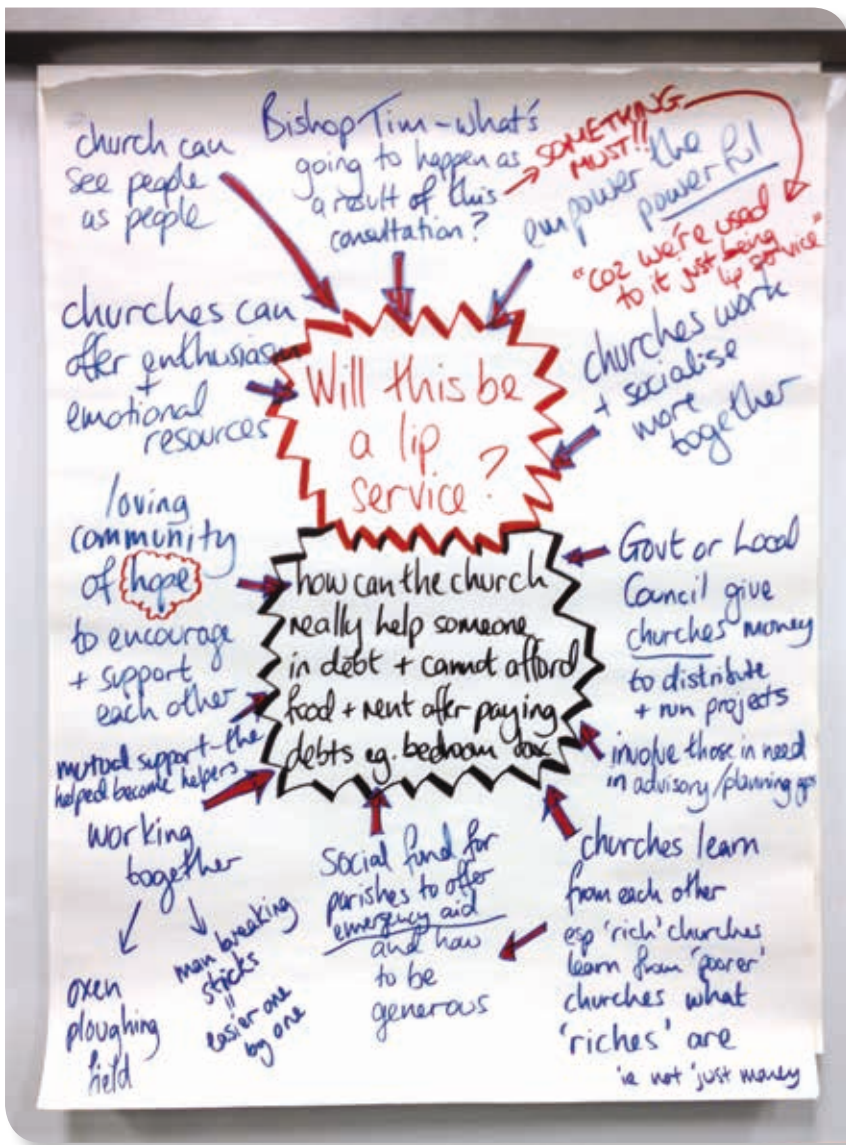 church can
see people
as people
Bishop Tim - what's
going to happen as
a result of this
consultation?
SOMETHING
MUST!!
empower the
powerful
"COZ we're used
to it just being
lip service"
churches can
offer enthusiasm
+
emotional
resources
Will this be
a lip
service?
churches work
+ socialise
more
together
loving
community
of hope
to encourage
+ support
each other
how can the church
really help someone
in debt + cannot afford
food + rent after paying
debts eg. bedroom tax
Govt or Local
Council give
churches money
to distribute
+ run projects
involve those in need
in advisory/planning gps
mutual support - the
helped become helpers
working
together
oxen
ploughing
field
man breaking
sticks
=
easier one
by one
Social fund for
parishes to offer
emergency aid
and how
to be
generous
churches learn
from each other
esp 'rich' churches
learn from 'poorer'
churches what
'riches' are
'ie not 'just money